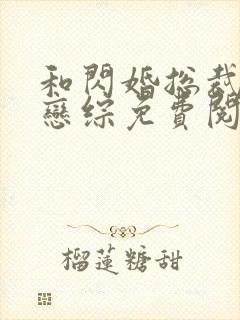 和閃婚總裁
戀綜免費閱
榴蓮糖甜